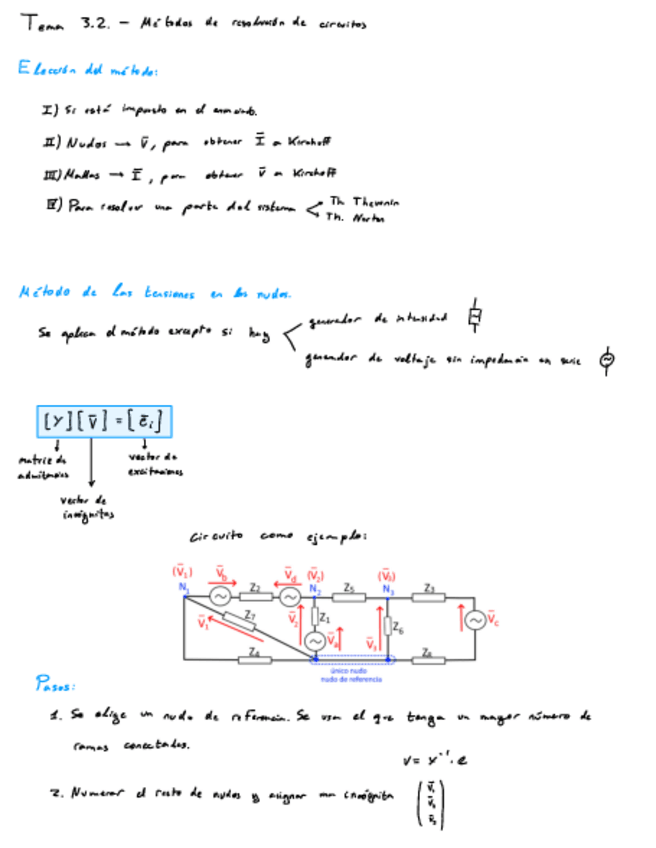 Tema 3.2. - Métodos de resolución de circuitos
Elección del método:
I) Si está impuesto en el enunciado.
II) Nudos → V̄, para obtener Ī → Kirchoff
III) Mallas → Ī, para obtener V̄ → Kirchoff
IV) Para resolver una parte del sistema
Th. Thevenin
Th. Norton
Método de las tensiones en los nudos.
Se aplica el método excepto si hay
generador de intensidad
generador de voltaje sin impedancia en serie
[Y][V̄] = [ē i]
matriz de admitancias
vector de excitaciones
vector de incógnitas
Circuito como ejemplo:
(V̄1) V̄b V̄d (V̄2) (V̄3)
N1 Z2 N2 Z5 N3 Z3
V̄1 Z7 V̄2 Z1 V̄a V̄3 Z6 V̄c
Z4
único nudo
nudo de referencia
Pasos:
1. Se elige un nudo de referencia. Se usa el que tenga un mayor número de
ramas conectadas.
V = Y⁻¹·e
2. Numerar el resto de nudos y asignar una incógnita